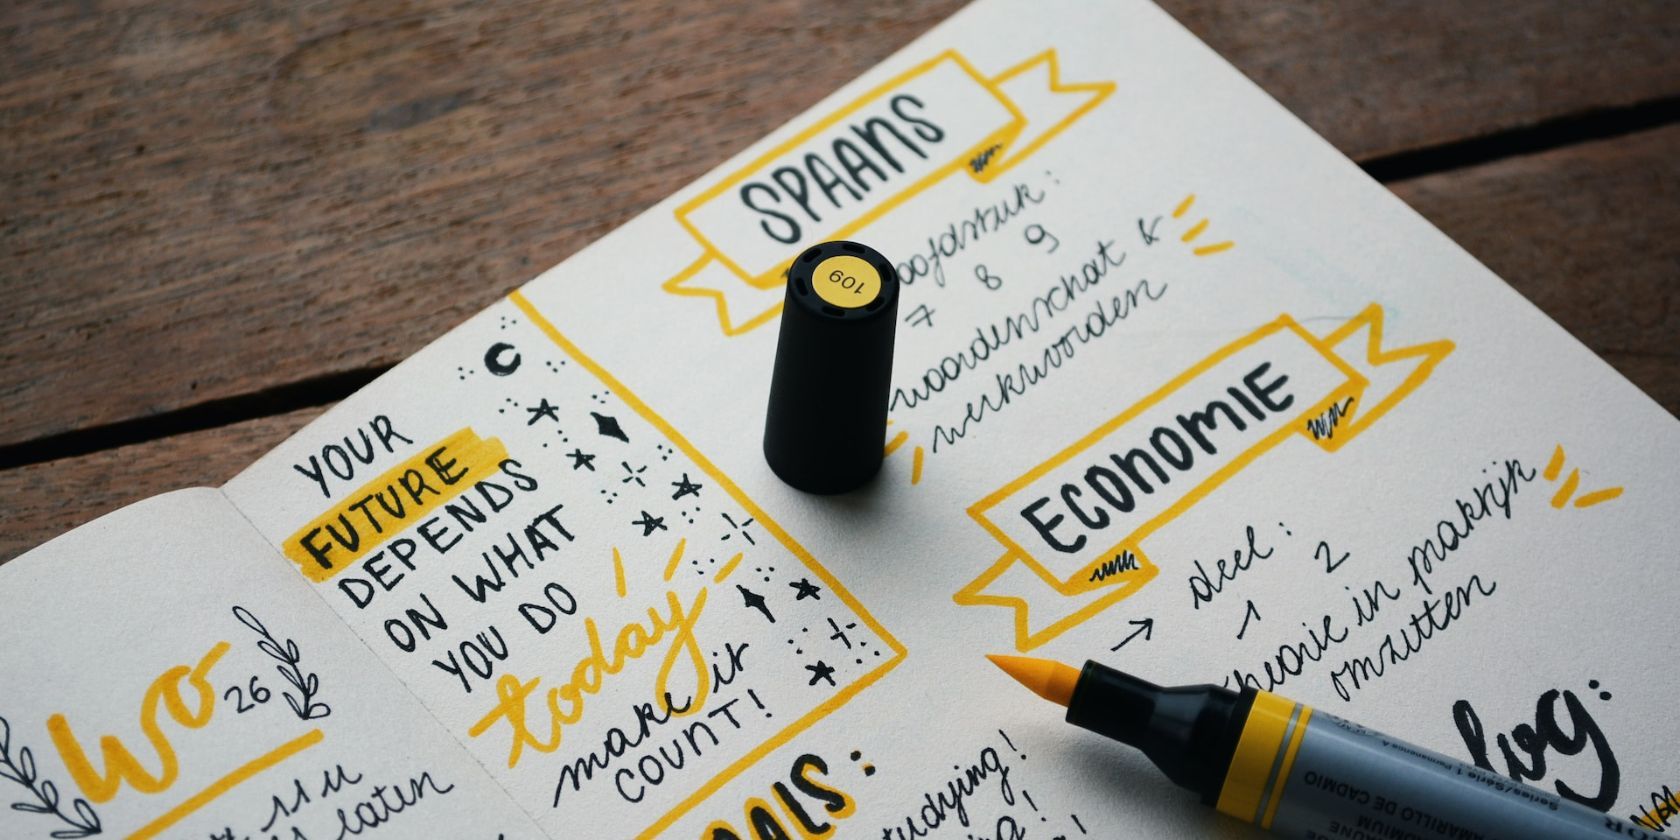 SPAANS
7 8 9
woordenschat &
werkwoorden
ECONOMIE
→ deel:
1 2
theorie in praktijk
omzetten
log:
YOUR
FUTURE
DEPENDS
ON WHAT
YOU DO
today
make it
COUNT!
wo
26
11 u
laten
studying!
109
Series/Série 1 Permanence A
AMARILLO DE CADMIO